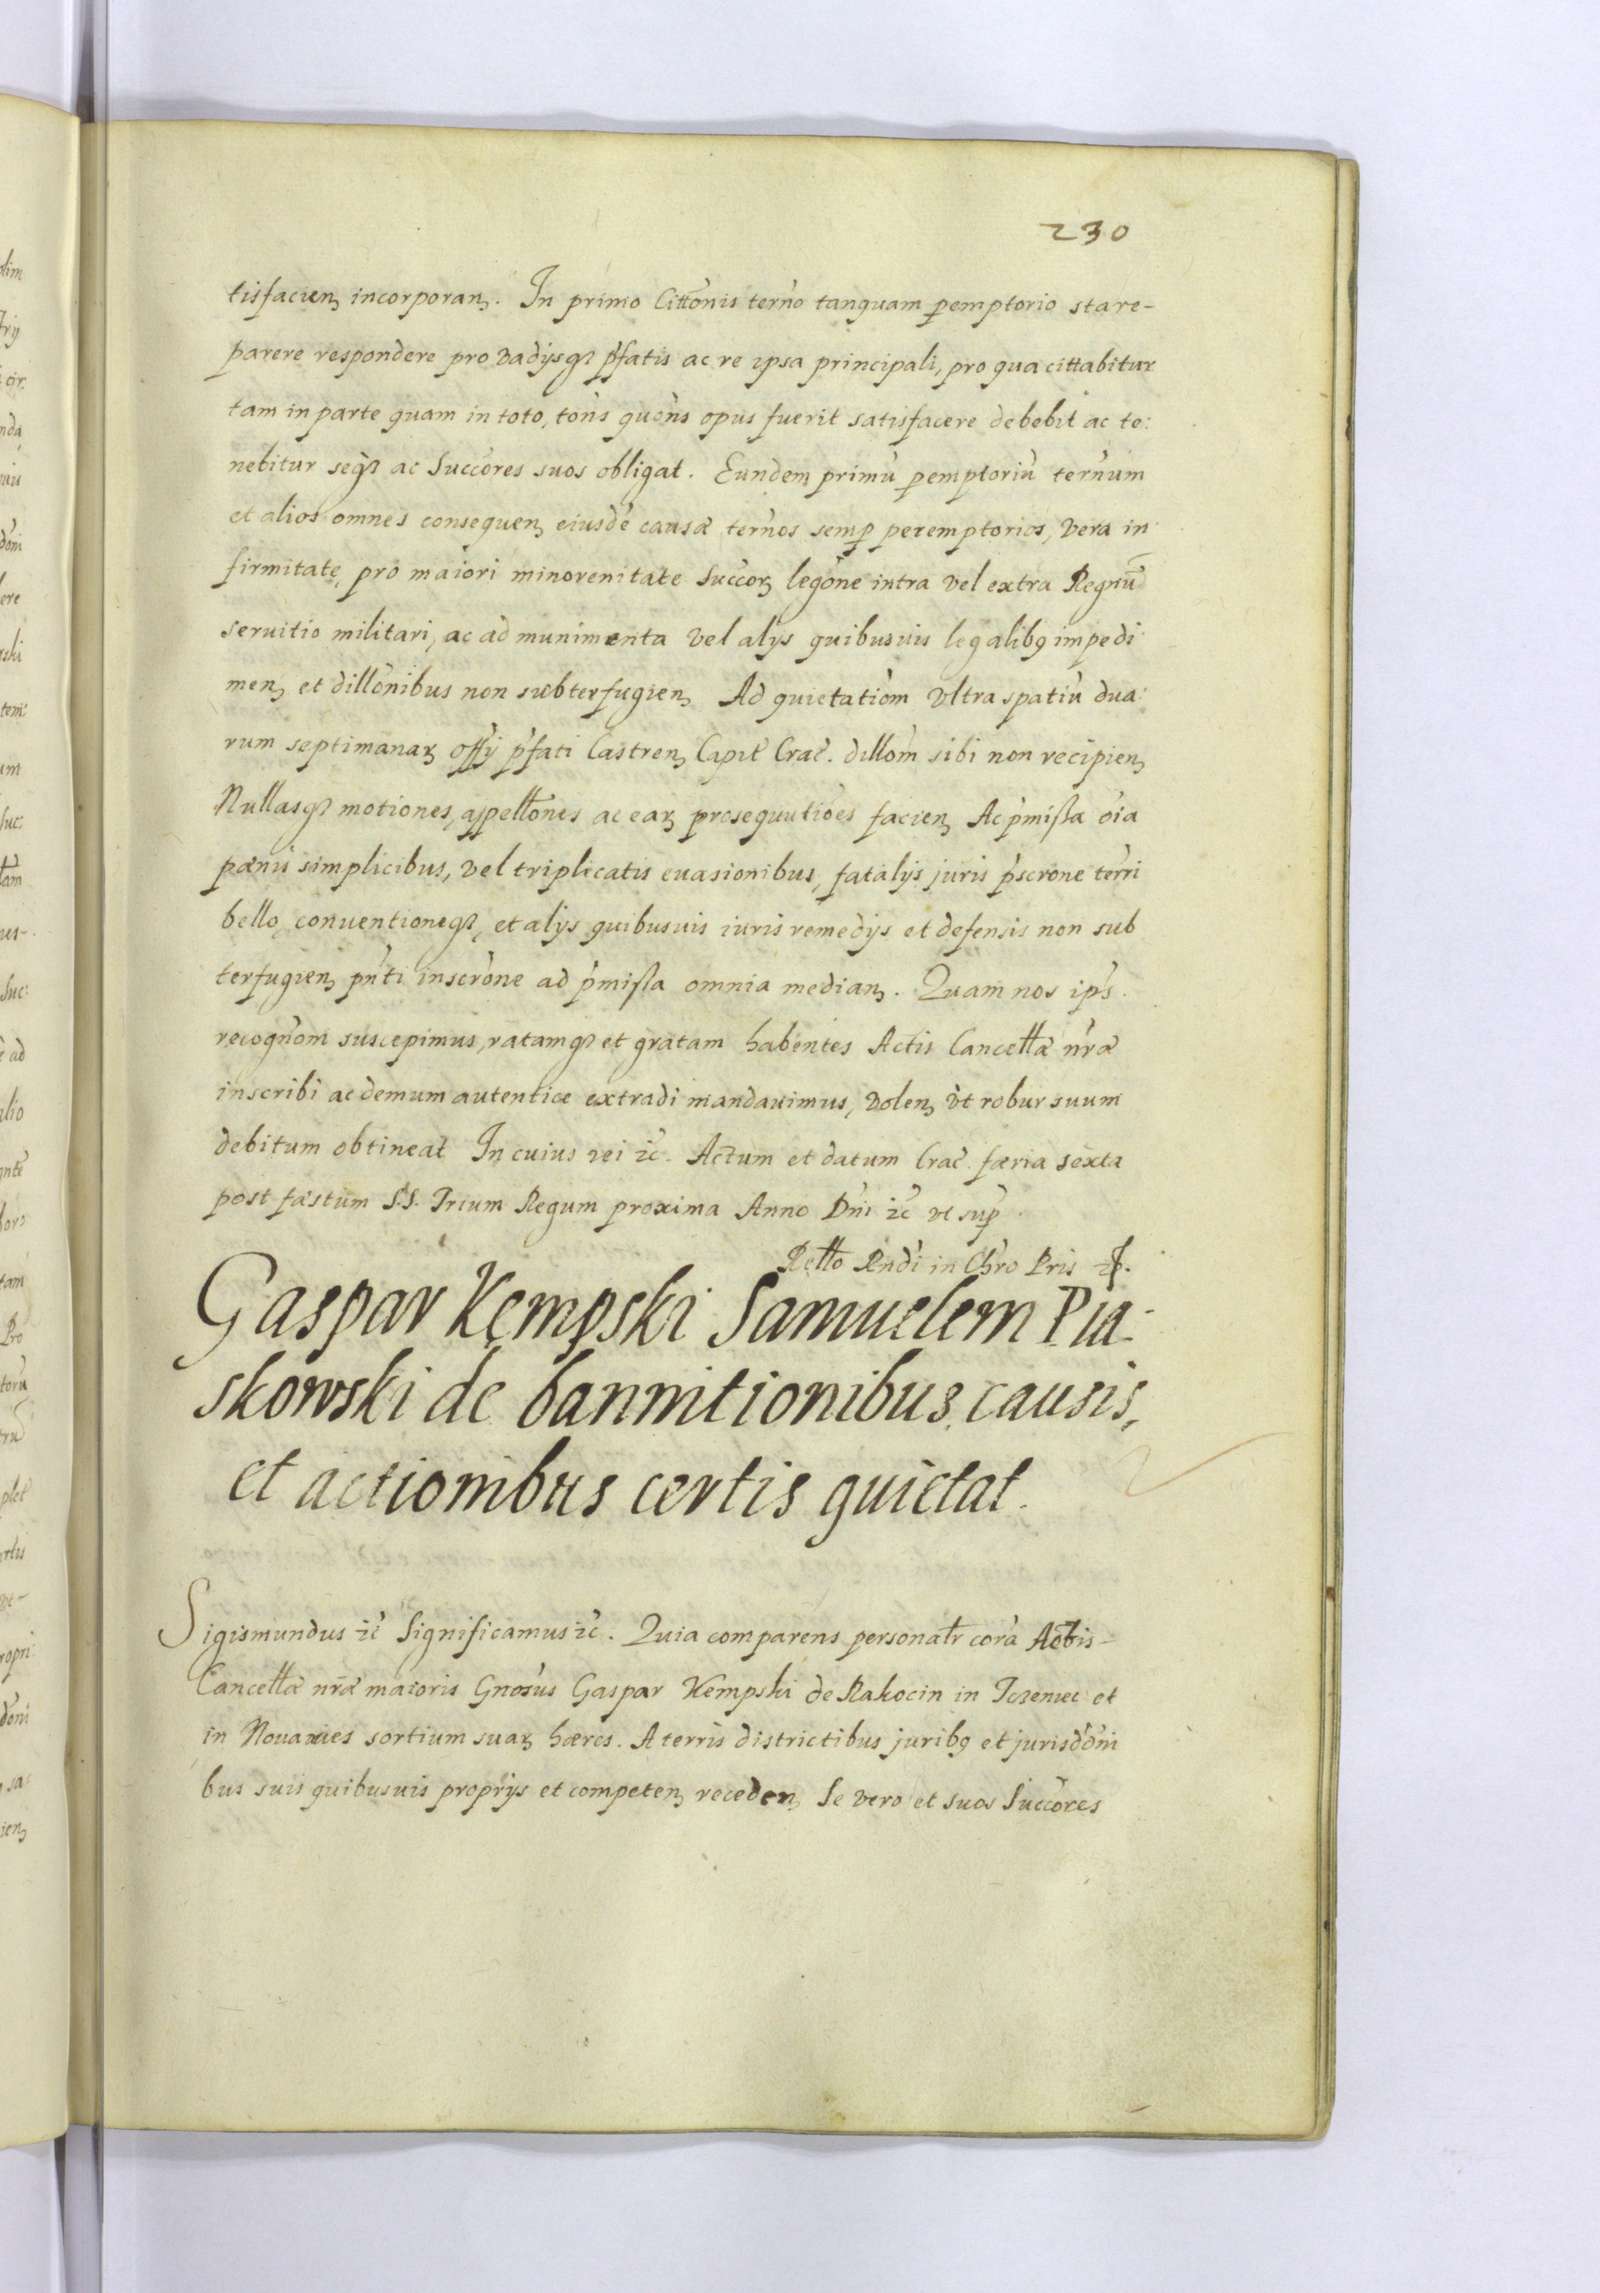 230
tisfacien̨ incorporan̨. In primo Cittõnis terño tanquam ꝑemptorio stare-
parere respondere pro vadijsqꝫ p̃fatis ac re ipsa principali, pro qua cittabitur
tam in parte quam in toto, toñs quoñs opus fuerit satisfacere debebit ac te:
nebitur seqꝫ ac Succõres suos obligat. Eundem primũ ꝑemptoriũ terñum
et alios omnes consequen̨ eiusdẽ causæ terños semꝑ peremptorios, vera in
firmitate, pro maiori minorenitate Succoꝝ legõne intra vel extra Regnũ
seruitio militari, ac ad munimenta vel alys quibusuis legalibꝗ impedi
men̨ et dillõnibus non subterfugien̨ Ad quietatiõm vltra spatiũ dua:
rum septimanaꝝ offy p̃fati Castren̨ Capit̃ Crac̃. dillõm sibi non recipien̨
Nullasqꝫ motiones, appellõnes ac eaꝝ prosequutiões facien̨ Ac p̃missa oĩa
pænis simplicibus, vel triplicatis euasionibus, fatalijs juris p̃scrõne terr̃i
bello, conuentioneqꝫ, et alijs quibusuis iuris remedijs et defensis non sub
terfugien̨ pñti inscrõne ad p̃missa omnia median̨. Quam nos ip̃s
recogñom suscepimus, ratamqꝫ et gratam habentes Actis Cancellæ ñræ
inscribi ac demum autentice extradi mandauimus, volen̨ vt robur suum
debitum obtineat In cuius rei ꝛc̃. Actum et datum Crac̃ færia sexta
post fæstum S.S. Trium Regum proxima Anno Dñi ꝛc̃ vt suꝑ
Rello Rndi in Chro Pris ꝛc.
Gaspar Kempski Samuelem Pia-
skowski de bannitionibus, causis,
et actionibus certis quietat.
Sigismundus ꝛc̃ Significamus ꝛc̃. Quia comparens personalr̃ corã Actis-
Cancellæ ñræ maioris Gnõsus Gaspar Kempski de Rakocin in et
in sortium suaꝝ hæres. A terris districtibus juribꝗ et jurisdõni
bus suis quibusuis proprijs et competen̨ receden̨ Se vero et suos Succõres